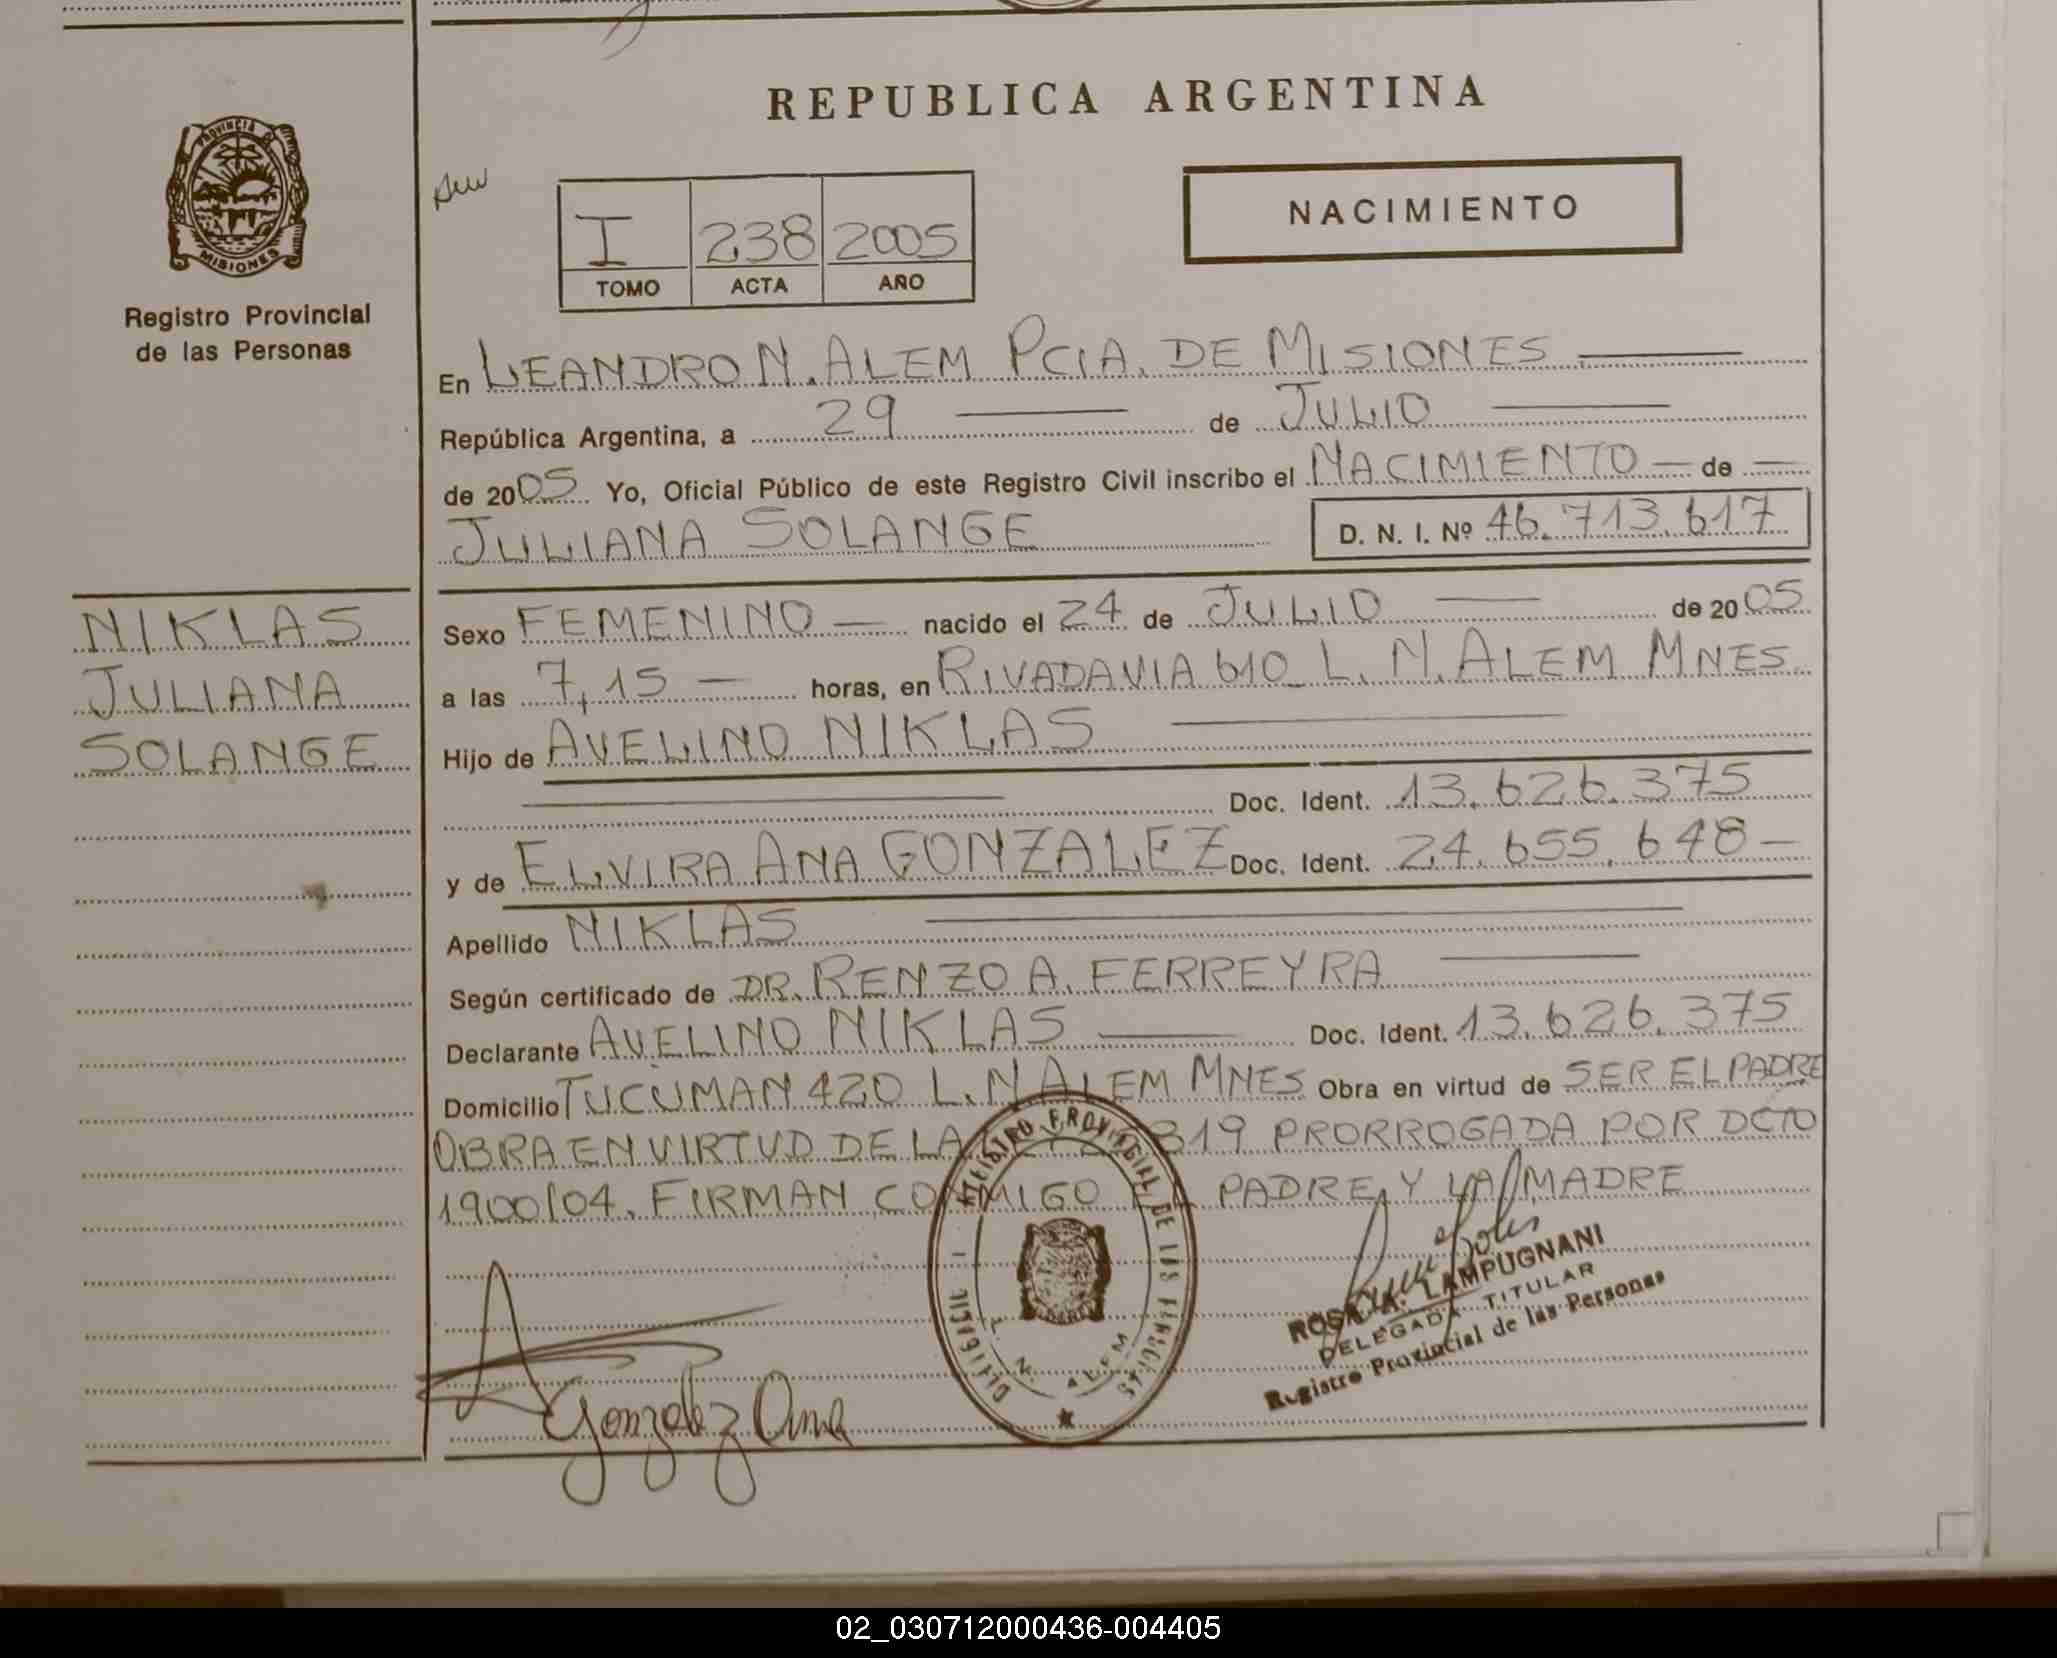 REPUBLICA ARGENTINA
PROVINCIA DE MISIONES
Registro Provincial
de las Personas
NACIMIENTO
I 238 2005
TOMO ACTA AÑO
En LEANDRO N. ALEM PCIA. DE MISIONES
República Argentina, a 29 de JULIO
de 2005 Yo, Oficial Público de este Registro Civil inscribo el NACIMIENTO de
JULIANA SOLANGE D. N. I. Nº 46.713.617
NIKLAS
JULIANA
SOLANGE
Sexo FEMENINO nacido el 24 de JULIO de 2005
a las 7,15 horas, en RIVADAVIA 610 L. N. ALEM MNES
Hijo de AVELINO NIKLAS
Doc. Ident. 13.626.375
y de ELVIRA ANA GONZALEZ Doc. Ident. 24.655.648
Apellido NIKLAS
Según certificado de DR. RENZO A. FERREYRA
Declarante AVELINO NIKLAS Doc. Ident. 13.626.375
Domicilio TUCUMAN 420 L. N ALEM MNES Obra en virtud de SER EL PADRE
OBRA EN VIRTUD DE LA 319 PRORROGADA POR DCTO
1900/04. FIRMAN CONMIGO EL PADRE Y LA MADRE
REGISTRO PROVINCIAL DE LAS PERSONAS
L. N. ALEM
ROSA A. LAMPUGNANI
DELEGADA TITULAR
Registro Provincial de las Personas
Gonzalez Ana
02_030712000436-004405